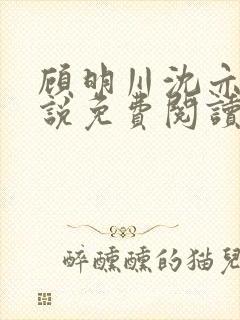 顾明川沈亦
說免費閱讀
醉醺醺的猫兒